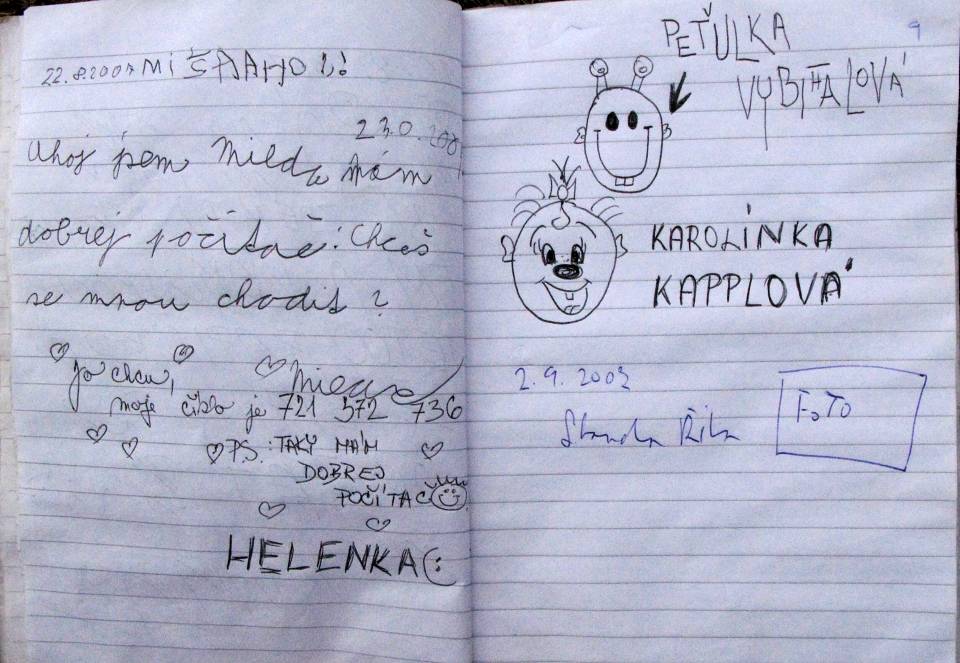 22.8.2007 MIŠÁAHOJ!!
23.0.200
Ahoj jsem Milda mám
dobrej počítač! Chceš
se mnou chodit?
Jo chcu,
moje číslo je 721 572 736
P.S.: TAKY MÁM
DOBREJ
POČÍTAČ
HELENKA (:
9
PEŤULKA
VYBÍHALOVÁ
KAROLÍNKA
KAPPLOVÁ
2.9.2002
Standa Říha
FOTO